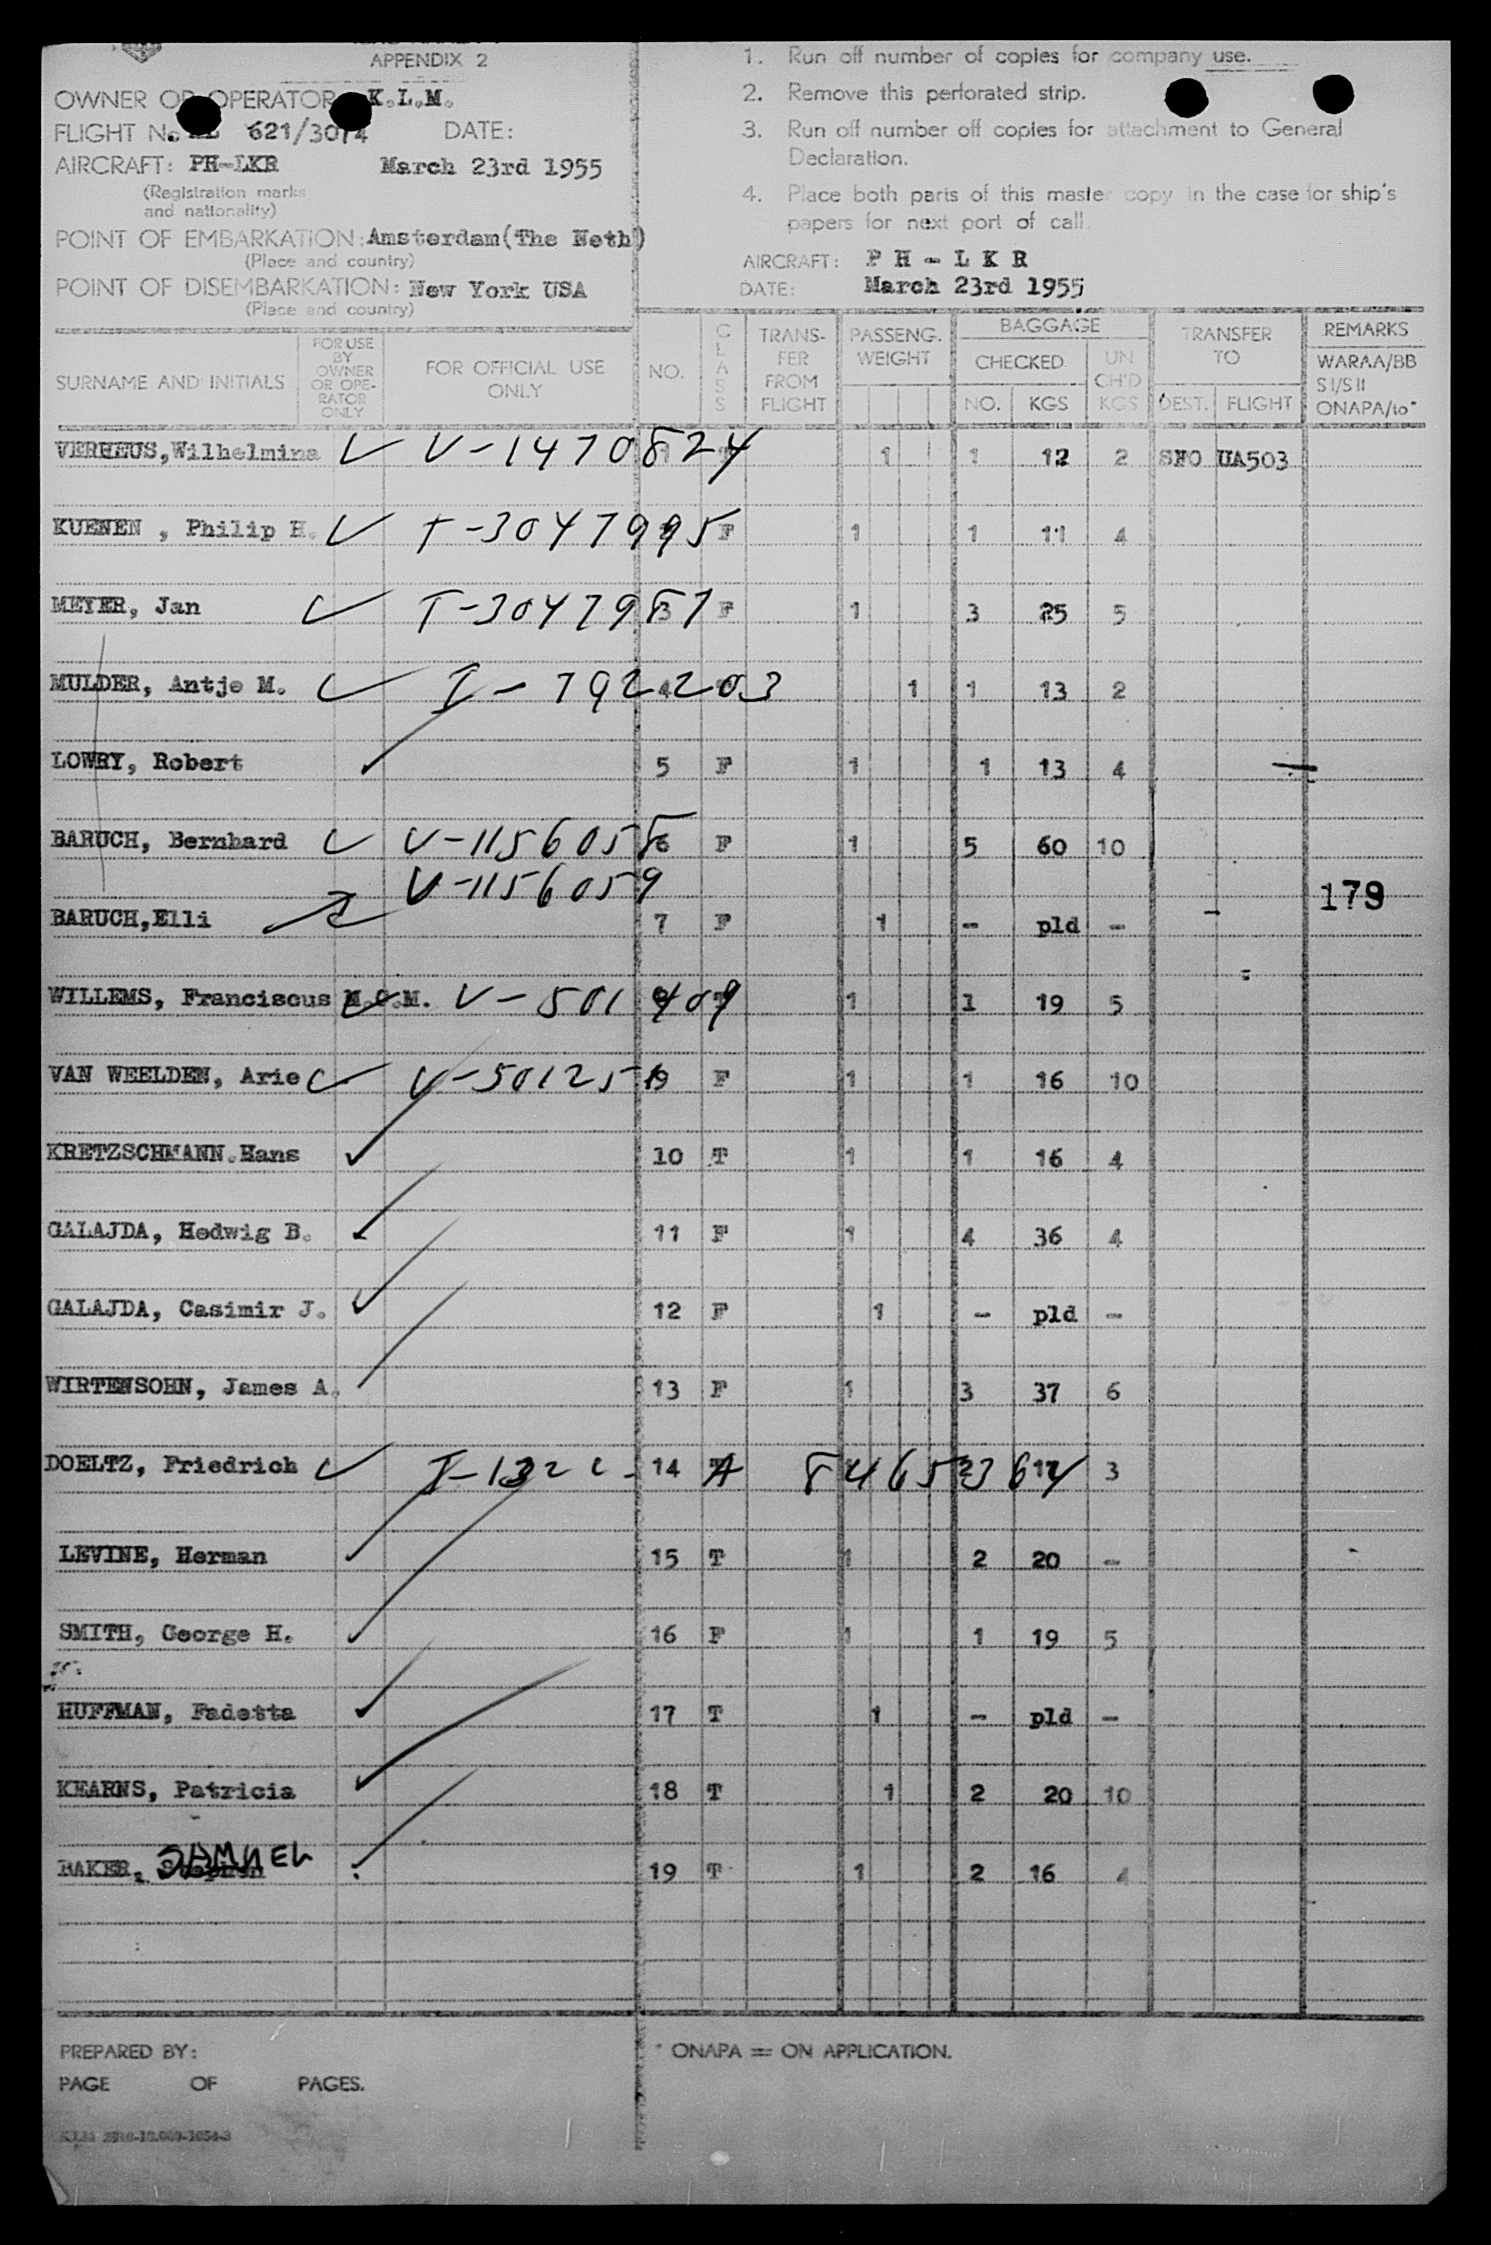 APPENDIX 2
OWNER OR OPERATOR K.L.M.
FLIGHT No. 621/3014 DATE:
AIRCRAFT: PH-LKR March 23rd 1955
(Registration marks
and nationality)
POINT OF EMBARKATION: Amsterdam(The Neth!)
(Place and country)
POINT OF DISEMBARKATION: New York USA
(Place and country)
1. Run off number of copies for company use.
2. Remove this perforated strip.
3. Run off number off copies for attachment to General
Declaration.
4. Place both parts of this master copy in the case for ship's
papers for next port of call.
AIRCRAFT: PH-LKR
DATE: March 23rd 1955
SURNAME AND INITIALS
FOR USE
BY
OWNER
OR OPE-
RATOR
ONLY
FOR OFFICIAL USE
ONLY
NO.
CLASS
TRANS-
FER
FROM
FLIGHT
PASSENG.
WEIGHT
BAGGAGE
CHECKED
NO. KGS
UN
CH'D
KGS
TRANSFER
TO
DEST. FLIGHT
REMARKS
WARAA/BB
SI/SII
ONAPA/to*
VERHEUS,Wilhelmina V-1470824 1 1 12 2 SFO UA503
KUENEN , Philip H. T-3047995 F 1 1 11 4
MEYER, Jan T-3047987 3 F 1 3 25 5
MULDER, Antje M. I-792203 4 1 1 13 2
LOWRY, Robert 5 F 1 1 13 4
BARUCH, Bernhard V-1156058 6 F 1 5 60 10
V-1156059
179
BARUCH,Elli 7 F 1 - pld -
WILLEMS, Franciscus M.C.M. V-501409 1 1 19 5
VAN WEELDEN, Arie V-501251 9 F 1 1 16 10
KRETZSCHMANN.Hans 10 T 1 1 16 4
GALAJDA, Hedwig B. 11 F 1 4 36 4
GALAJDA, Casimir J. 12 F 1 - pld -
WIRTENSOHN, James A. 13 F 1 3 37 6
DOELTZ, Friedrich 14 3
LEVINE, Herman 15 T 1 2 20 -
SMITH, George H. 16 F 1 1 19 5
HUFFMAN, Fadetta 17 T 1 - pld -
KEARNS, Patricia 18 T 1 2 20 10
BAKER, SAMUEL 19 T 1 2 16 4
PREPARED BY:
PAGE OF PAGES.
* ONAPA = ON APPLICATION.